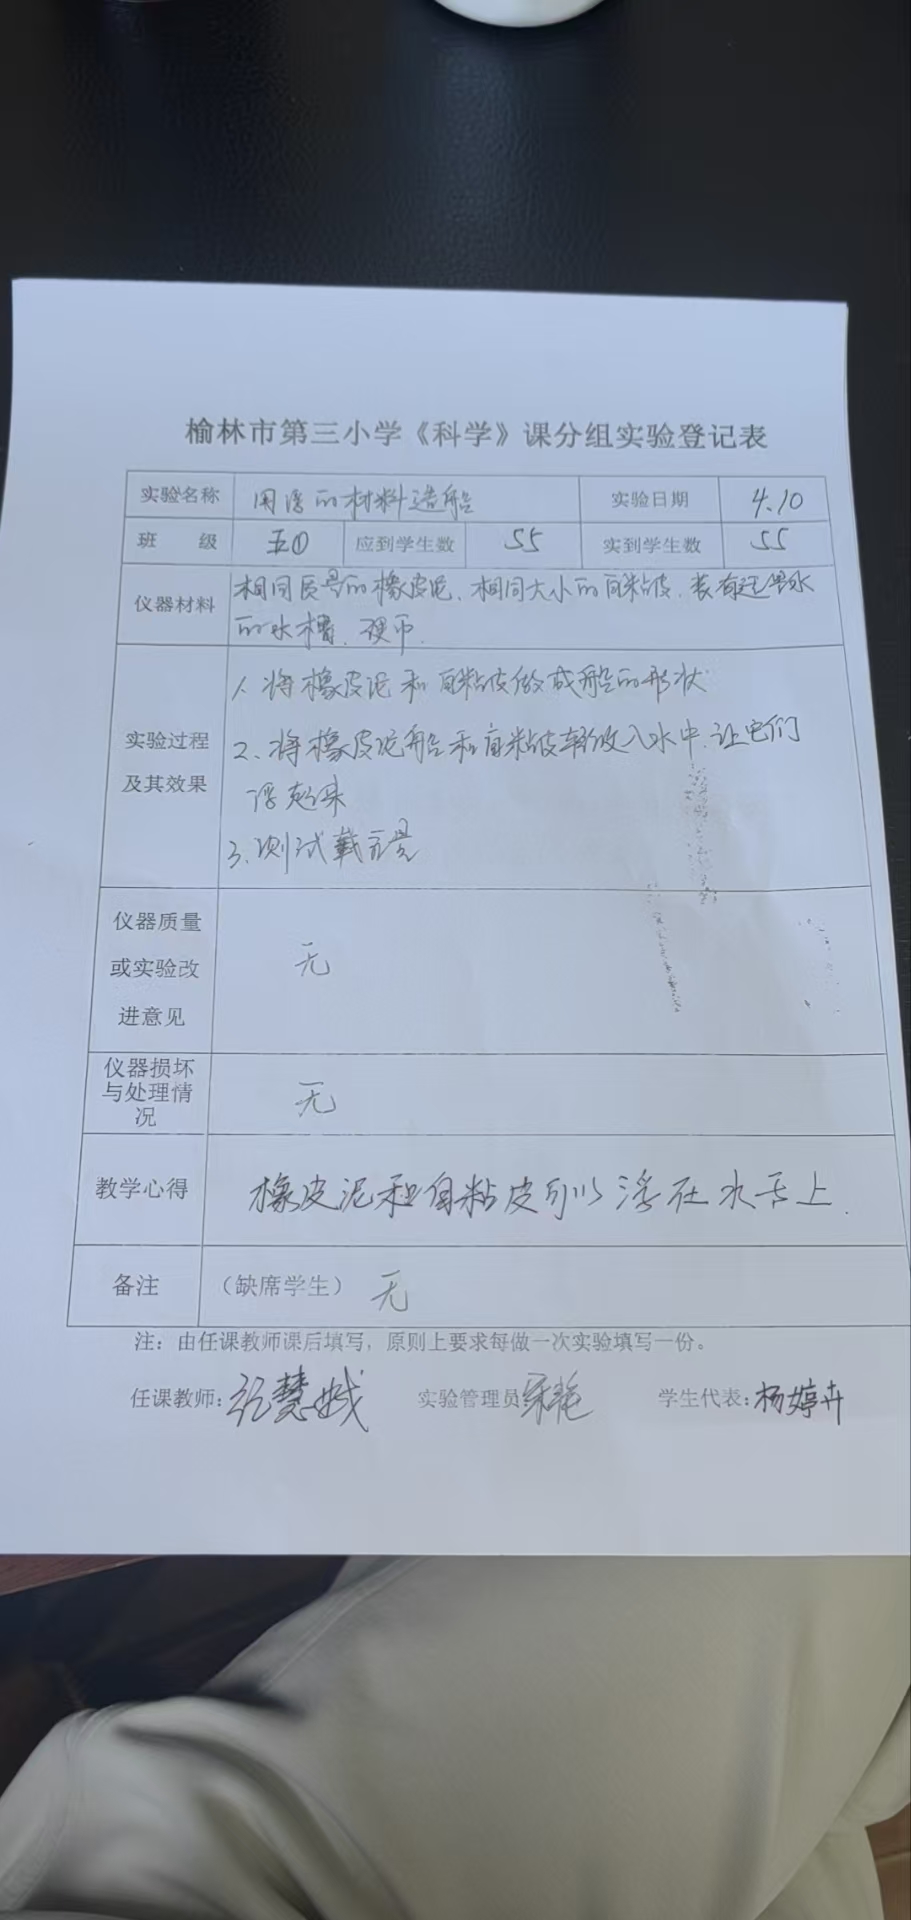 榆林市第三小学《科学》课分组实验登记表
实验名称 用浮的材料造船 实验日期 4.10
班 级 五① 应到学生数 55 实到学生数 55
仪器材料 相同质量的橡皮泥、相同大小的自粘皮、装有适量水
的水槽、硬币.
实验过程
及其效果
1、将橡皮泥和自粘皮做成船的形状
2、将橡皮泥船和自粘皮轻放入水中、让它们
浮起来
3、测试载重量
仪器质量
或实验改
进意见
无
仪器损坏
与处理情
况
无
教学心得 橡皮泥和自粘皮可以浮在水面上.
备注 (缺席学生) 无
注：由任课教师课后填写，原则上要求每做一次实验填写一份。
任课教师: 慧娥 实验管理员 学生代表: 杨婷卉